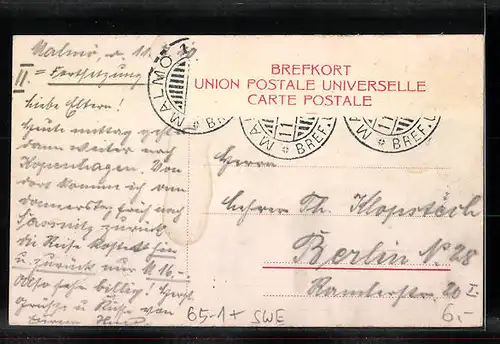 Malmö, d. 11.
II. = Fortsetzung
Liebe Eltern!
Heute mittag geht's
dann weiter nach
Kopenhagen. Von
dort komm ich am
Donnerstag früh nach
Sassnitz zurück
die Reise kostet hin
u. zurück nur M 16.-
Also sehr billig! Herzl.
Grüsse u. Küsse von
Eurem
BREFKORT
UNION POSTALE UNIVERSELLE
CARTE POSTALE
MALMÖ 1
MALMÖ 11 BREF.
BREF.
Herrn
Lehrer Th. Klopstech
Berlin N. 28
Ramlerstr. 20 I
65-1+ SWE
6.-